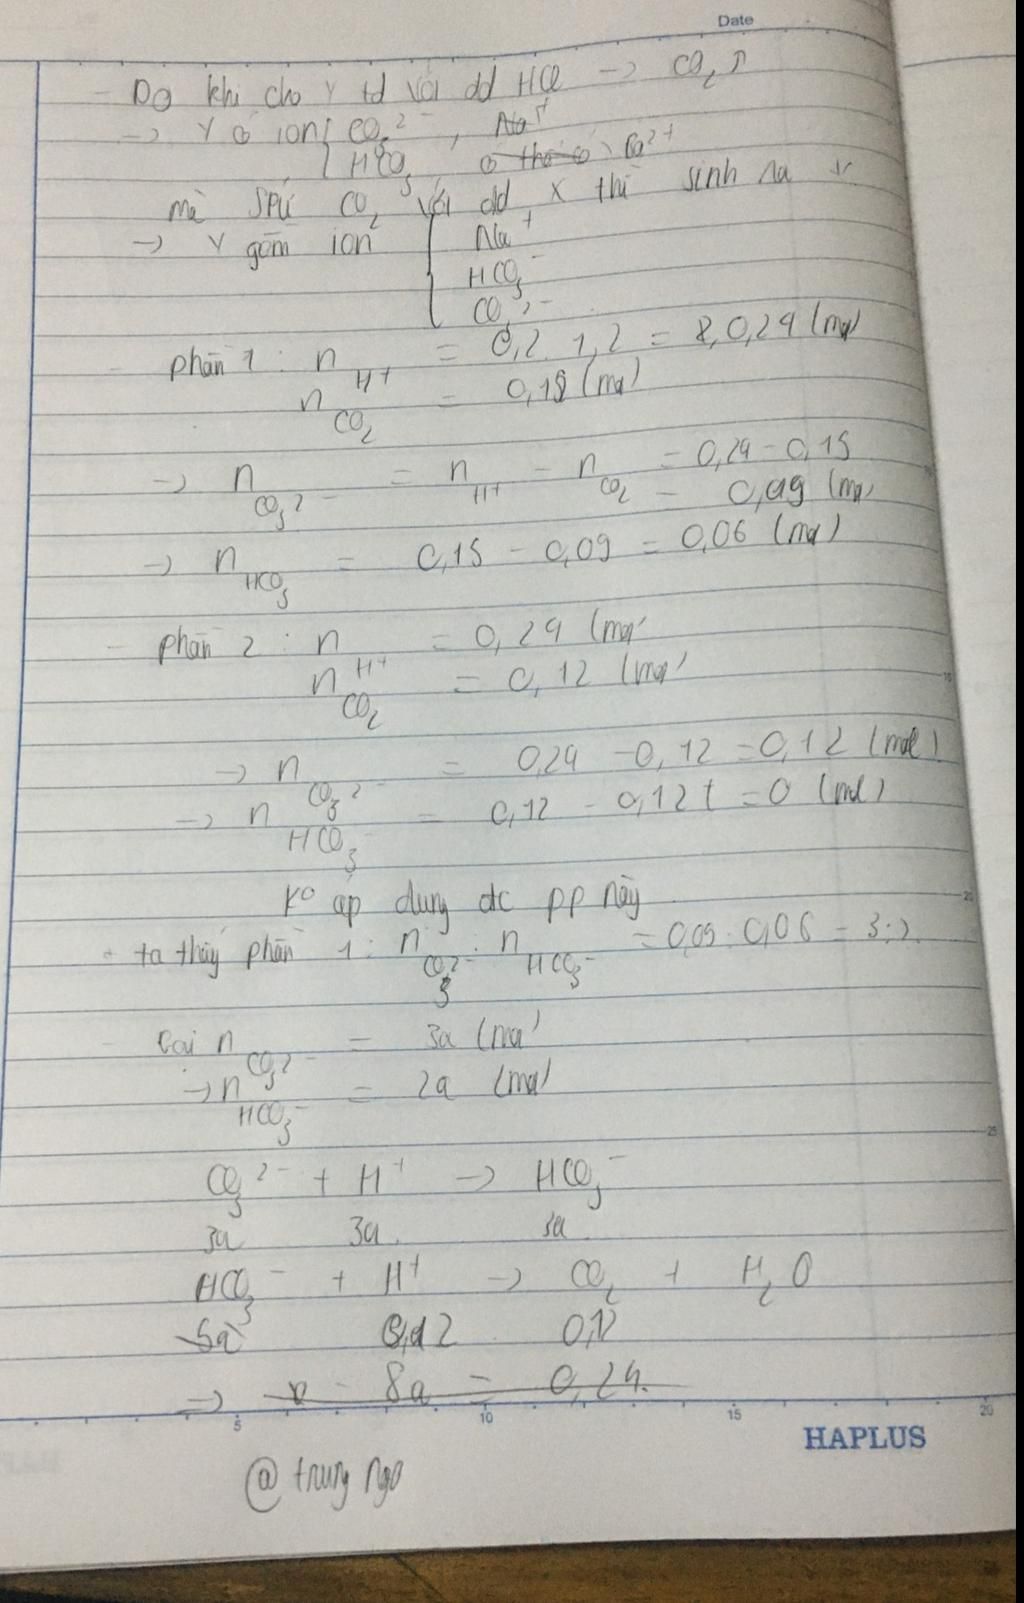 Date
- Do khi cho Y td với dd HCl → CO₂ ↑
→ Y có ion { CO₃²⁻, Na⁺
HCO₃⁻ có thể có Ba²⁺
mà sau CO₂ với dd X thì sinh ra ↓
→ Y gồm ion { Na⁺
HCO₃⁻
CO₃²⁻
- phần 1: n H⁺ = 0,2. 1,2 = 0,24 (mol)
n CO₂ = 0,15 (mol)
→ n CO₃²⁻ = n H⁺ - n CO₂ = 0,24 - 0,15
= 0,09 (mol)
→ n HCO₃⁻ = 0,15 - 0,09 = 0,06 (mol)
- phần 2: n H⁺ = 0,24 (mol)
n CO₂ = 0,12 (mol)
→ n CO₃²⁻ = 0,24 - 0,12 = 0,12 (mol)
→ n HCO₃⁻ = 0,12 - 0,12 = 0 (mol)
Ko áp dụng đc pp này
- ta thấy phần 1: n CO₃²⁻ : n HCO₃⁻ = 0,09 : 0,06 = 3:2
- Gọi n CO₃²⁻ = 3a (mol)
→ n HCO₃⁻ = 2a (mol)
CO₃²⁻ + H⁺ → HCO₃⁻
3a 3a 3a
HCO₃⁻ + H⁺ → CO₂ + H₂O
5a 0,12 0,12
→ 8a = 0,24.
5 10 15 20
HAPLUS
@ trung ngo